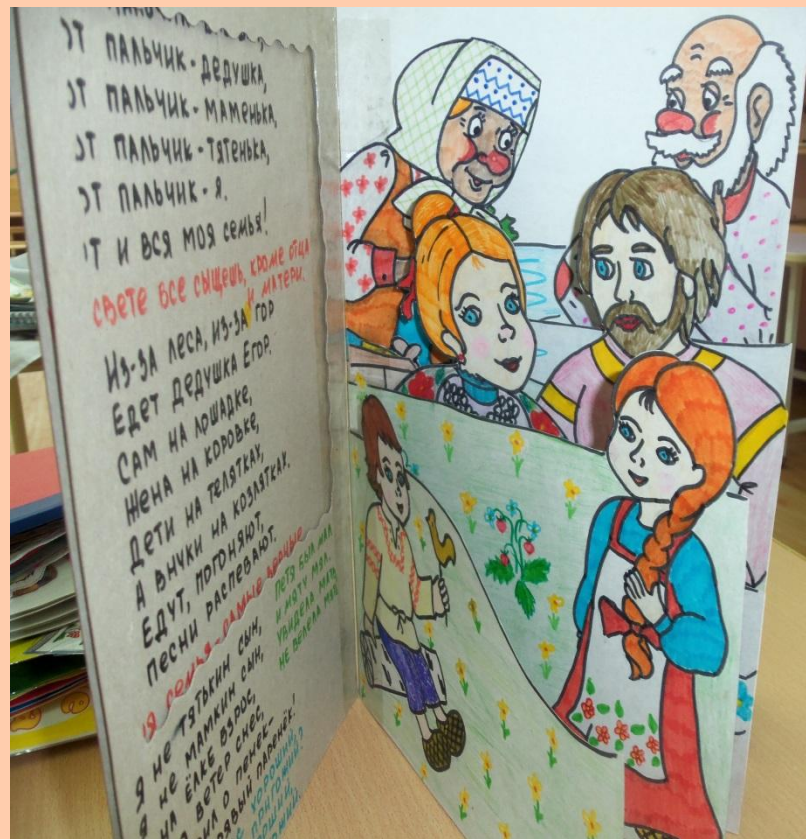 ЭТ ПАЛЬЧИК-ДЕДУШКА,
ЭТ ПАЛЬЧИК-МАМЕНЬКА,
ЭТ ПАЛЬЧИК-ТЯТЕНЬКА,
ЭТ ПАЛЬЧИК-Я.
Т И ВСЯ МОЯ СЕМЬЯ!
СВЕТЕ ВСЕ СЫЩЕШЬ, КРОМЕ ОТЦА
И МАТЕРИ.
ИЗ-ЗА ЛЕСА, ИЗ-ЗА ГОР
ЕДЕТ ДЕДУШКА ЕГОР.
САМ НА ЛОШАДКЕ,
ЖЕНА НА КОРОВКЕ,
ДЕТИ НА ТЕЛЯТКАХ,
А ВНУКИ НА КОЗЛЯТКАХ.
ЕДУТ, ПОГОНЯЮТ,
ПЕСНИ РАСПЕВАЮТ.
Я СЕМЬЯ-САМЫЕ РОДНЫЕ
ПЕТЯ БЫЛ МАЛ
И МЯТУ МЯЛ.
УВИДЕЛА МАТЬ
НЕ ВЕЛЕЛА МЯТЬ
Я НЕ ТЯТЬКИН СЫН,
Я НЕ МАМКИН СЫН,
НА ЁЛКЕ ВЗРОС,
ВЕТЕР СНЕС,
О ПЕНЕК-
ПАРЕНЁК!
ХОРОШИЙ,
ПРИГОЖИЙ?